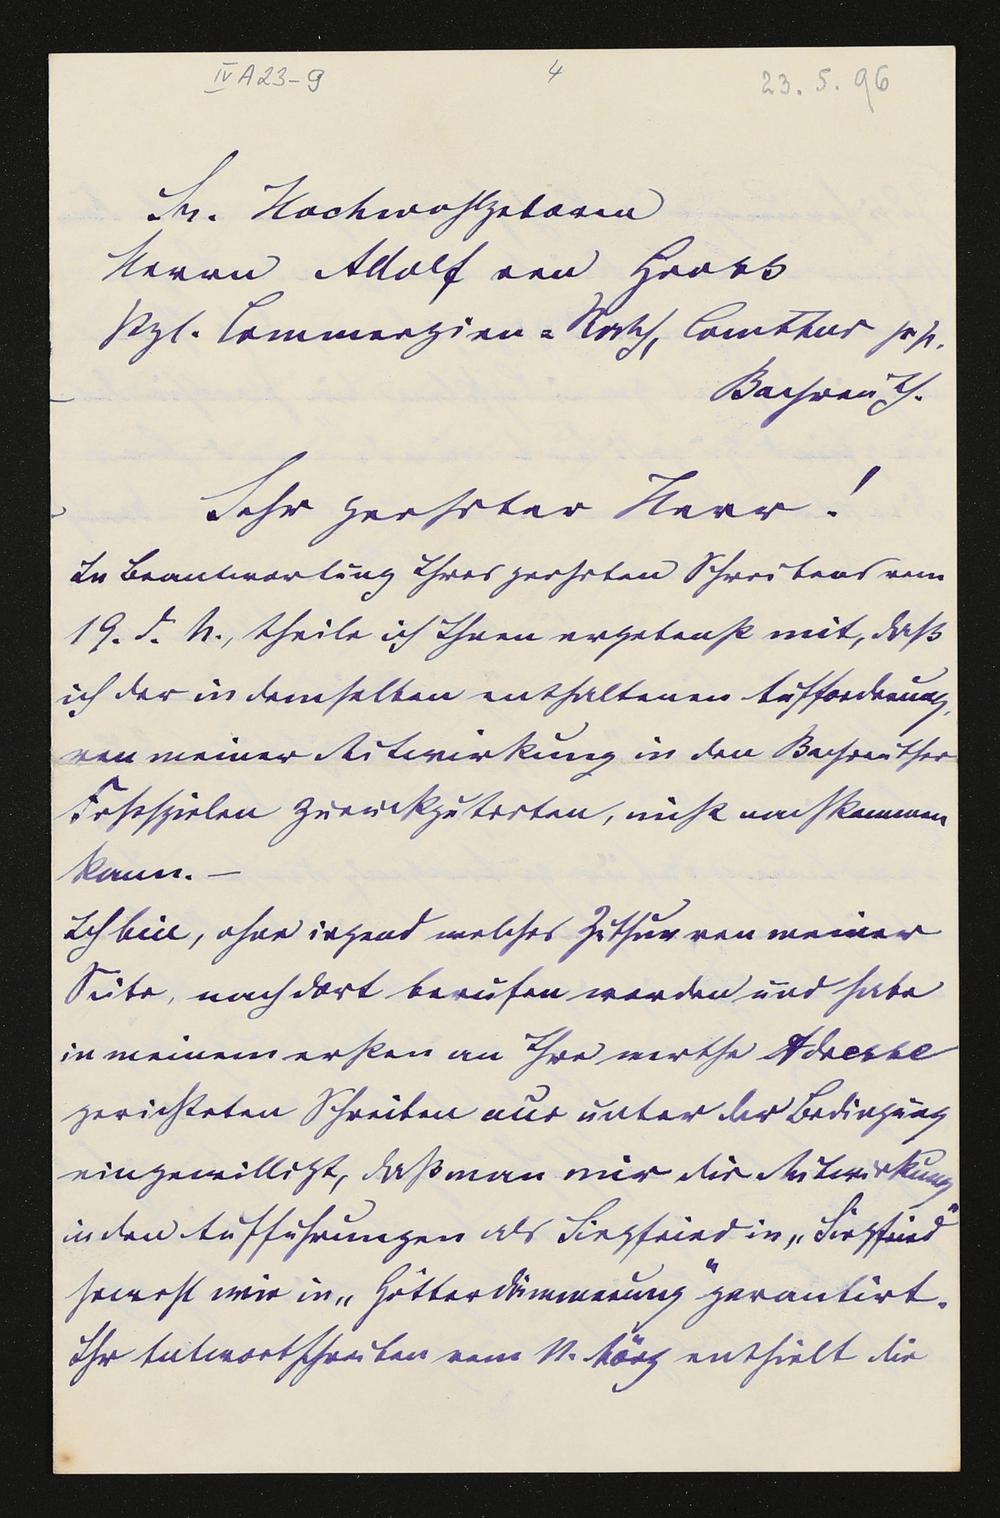 IV A 23-9
4
23. 5. 96
Sr. Hochwohlgeboren
Herrn Adolf von Gross
Kgl. Commerzien-Rath, Comthur pp.
Bayreuth.
Sehr geehrter Herr!
In Beantwortung Ihres geehrten Schreibens vom
19. d. M., theile ich Ihnen ergebenst mit, daß
ich der in demselben enthaltenen Aufforderung,
von meiner Mitwirkung in den Bayreuther
Festspielen zurückzutreten, nicht nachkommen
kann. —
Ich bin, ohne irgend welches Zuthun von meiner
Seite, nach dort berufen worden und habe
in meinem ersten an Ihre werthe Adresse
gerichteten Schreiben nur unter der Bedingung
eingewilligt, daß man mir die Mitwirkung
in den Aufführungen als Siegfried in „Siegfried"
sowohl wie in „Götterdämmerung" garantirt.
Ihr Antwortschreiben vom März enthielt die